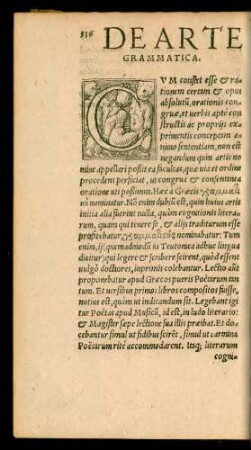 336 DE ARTE
GRAMMATICA.
CVM constet esse & ra-
tionem certum & opus
absolutũ, orationis con-
gruæ, et verbis aptè con-
structis ac proprijs ex-
primentis conceptam a-
nimo sententiam, non est
negandum quin artis no
mine appellari possit ea facultas, quæ via et ordine
procedens perficiat, ut congrua & consentanea
oratione uti possimus. Hæc a Græcis γραμματικὴ
nominatur. Nõ enim dubiũ est, quin huius artis
initia alia fuerint nulla, quàm cognitionis litera-
rum, quam qui tenere se, & alijs traditurum esse
profitebatur, γραμματικὸς nominabatur: Tum
enim, sicut, quemadmodũ is Teutonica adhuc lingua
dicitur, qui legere & scribere scirent, quòd essent
vulgò doctores, inopinis colebantur. Lectio alit
proponebatur apud Græcos pueris Poëtarum cum
tum. Et versibus primos libros compositos fuisse,
notius est, quàm ut indicandum sit. Legebant igi
tur Poëtas apud Musicũ, id est, in ludo literario:
& Magister sæpe lectione sua illis præibat. Et do-
cebantur simul ut fidibus scirẽt, simul ut carmina
Poëtarum ritè accommodarent. Itaq; literarum
cogni-